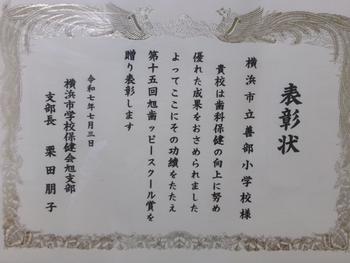 表彰状
横浜市立善部小学校様
貴校は歯科保健の向上に努め
優れた成果をおさめられました
よってここにその功績をたたえ
第十五回旭歯ッピースクール賞を
贈り表彰します
令和七年七月三日
横浜市学校保健会旭支部
支部長 栗田朋子